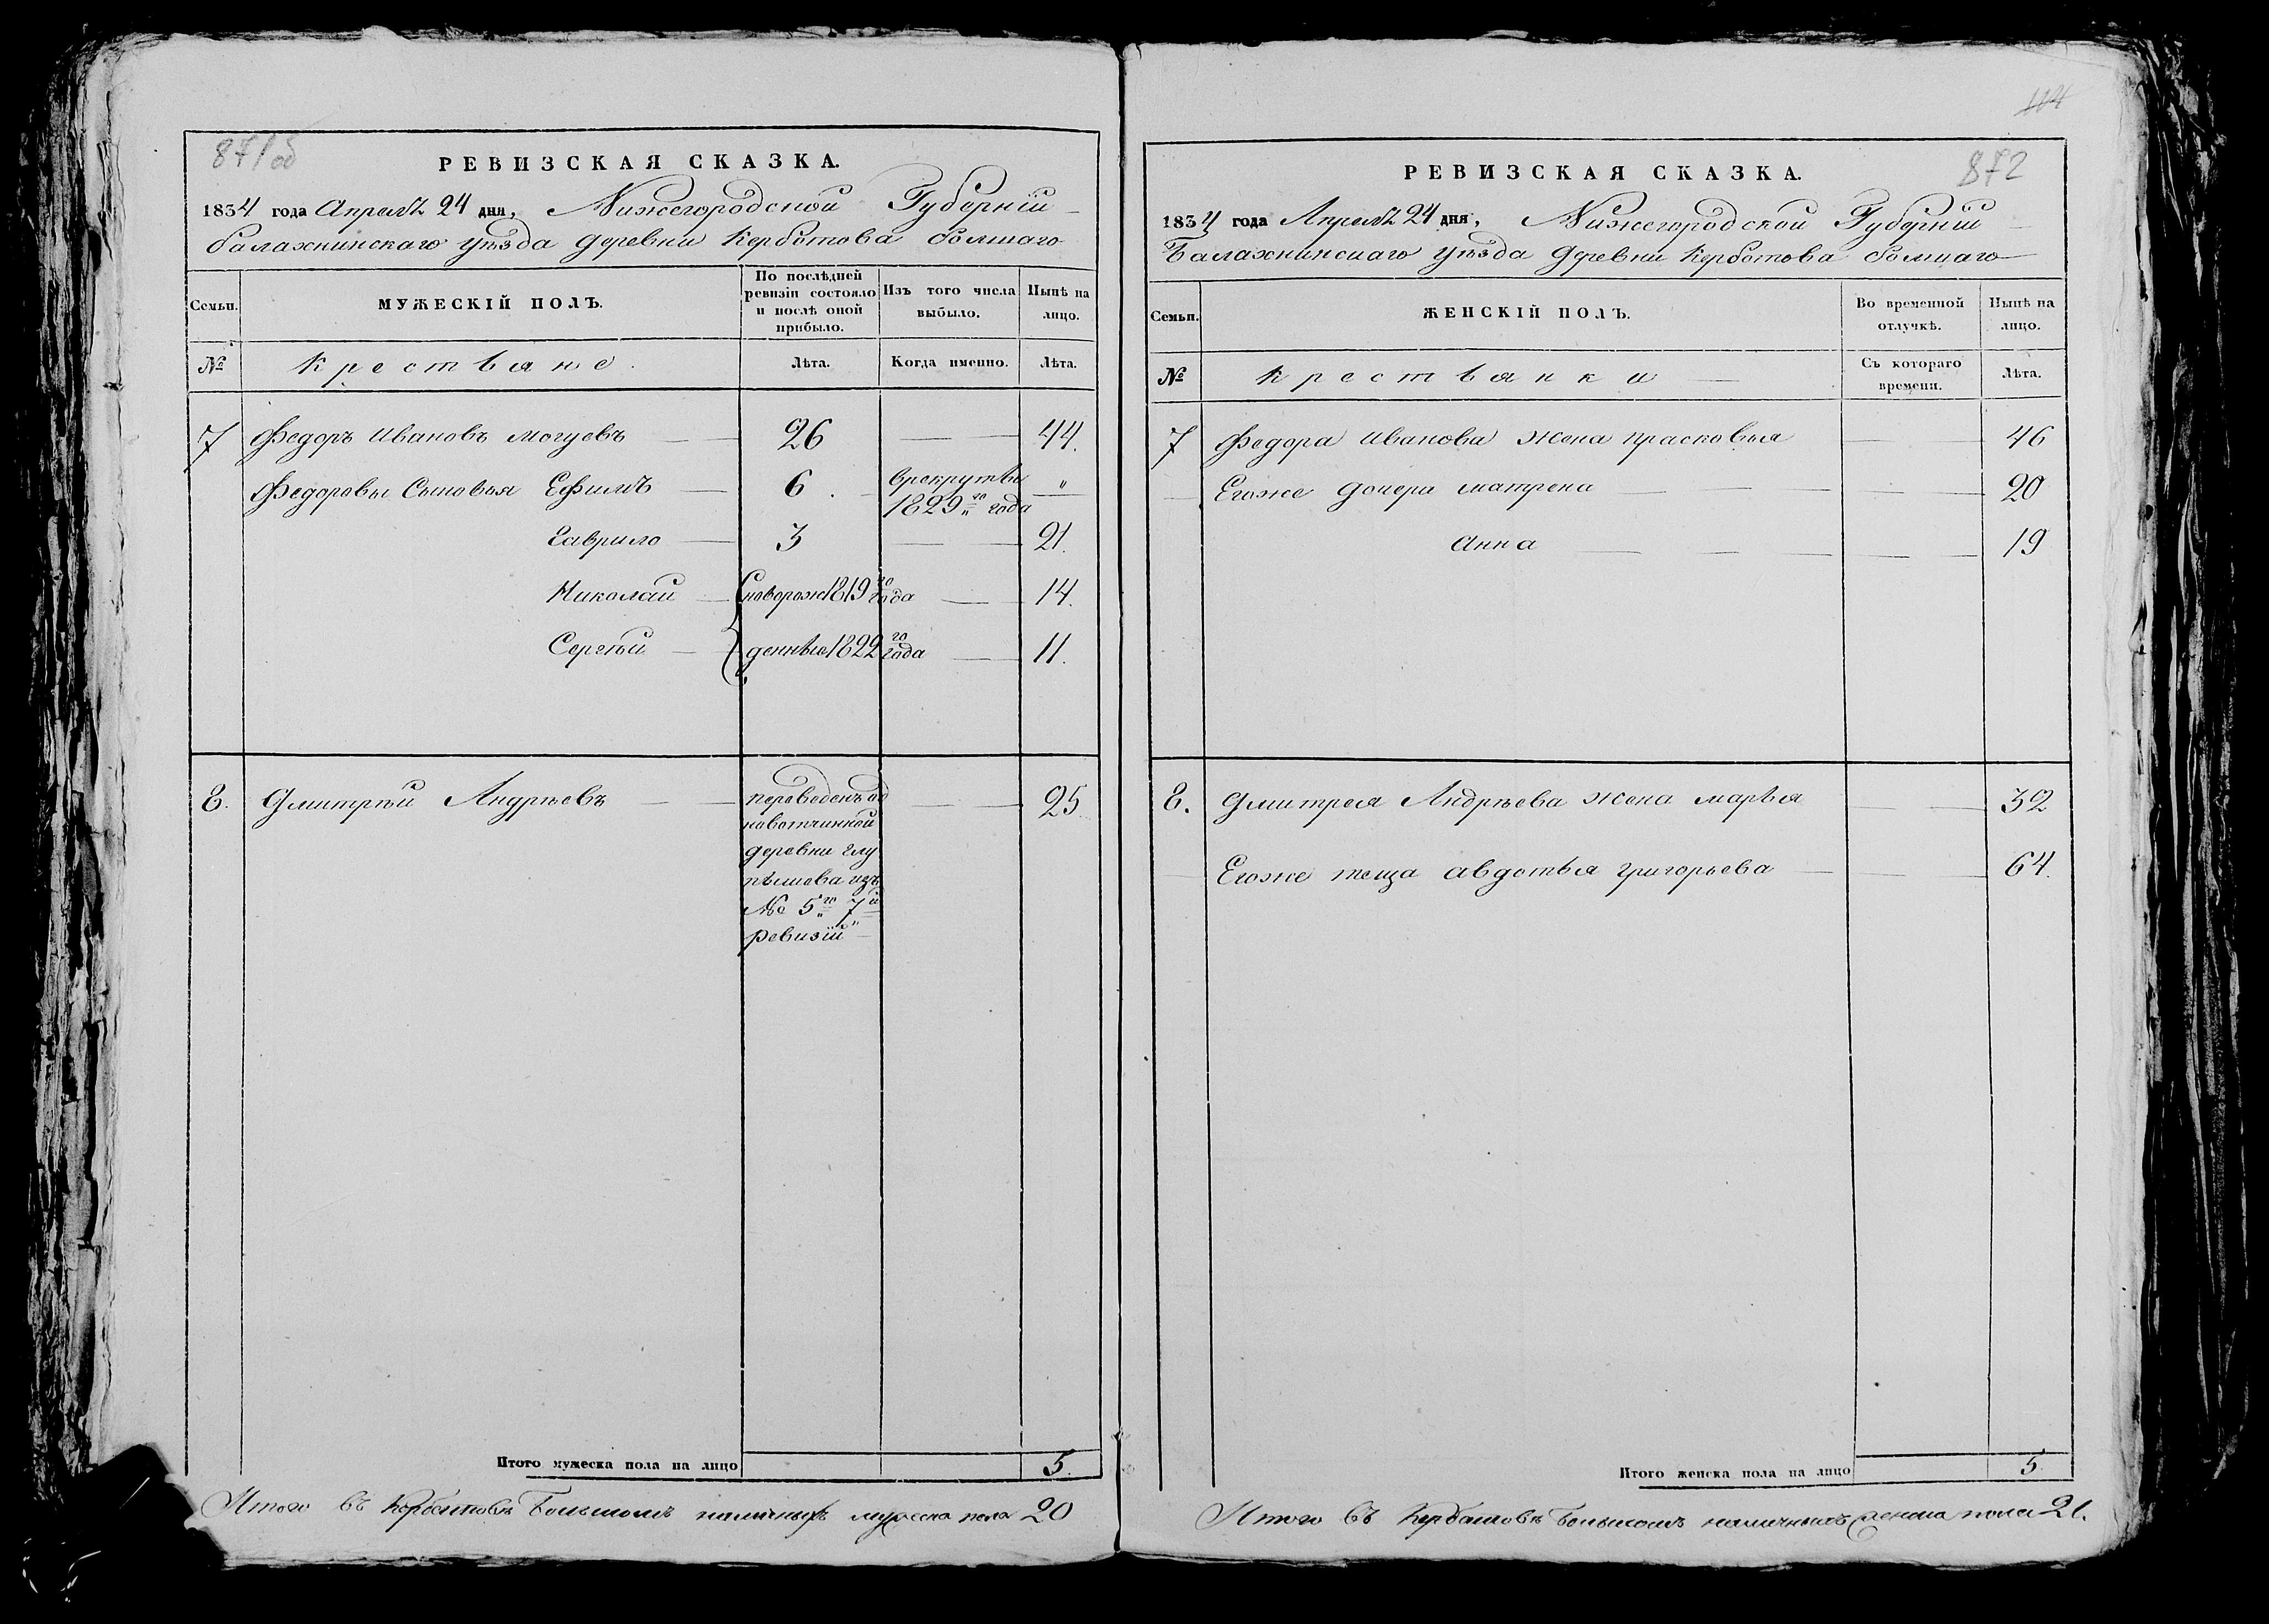 871об
РЕВИЗСКАЯ СКАЗКА.
1834 года Апреля 24 дня, Нижегородской Губернiи
балахнинскаго уѣзда деревни Керботова болшаго
Семьи.
МУЖЕСКIЙ ПОЛЪ.
По послѣдней ревизiи состояло и послѣ оной прибыло.
Изъ того числа выбыло.
Нынѣ на лицо.
№
крестьяне
Лѣта.
Когда именно.
Лѣта.
7 Федоръ Ивановъ 26 44.
Федоровы Сыновья Ефимъ 6 врекрутвы „
1829го года
Гаврило 3 21.
Николай новорож 1819го года 14.
Сергѣй денные 1822го года 11.
8. Дмитрѣй Андрѣевъ переведенъ од 25.
новотчинной
деревни глу
пѣшова изъ
№ 5го 7й
ревизiи
Итого мужеска пола на лицо 5.
Итого въ Большомъ наличныхъ мужеска пола 20
114
872
РЕВИЗСКАЯ СКАЗКА.
1834 года Апреля 24 дня, Нижегородской Губернiи
Балахнинскаго уѣзда деревни Керботова болшаго
Семьи.
ЖЕНСКIЙ ПОЛЪ.
Во временной отлучкѣ.
Нынѣ на лицо.
№
крестьянки
Съ котораго времени.
Лѣта.
7 Федора Иванова жена прасковья 46
Егоже дочери матрена 20
анна 19
8. Дмитрея Андрѣева жена марья 32
Егоже теща авдотья григорьева 64.
Итого женска пола на лицо 5.
Итого въ Большомъ наличныхъ женска пола 21.